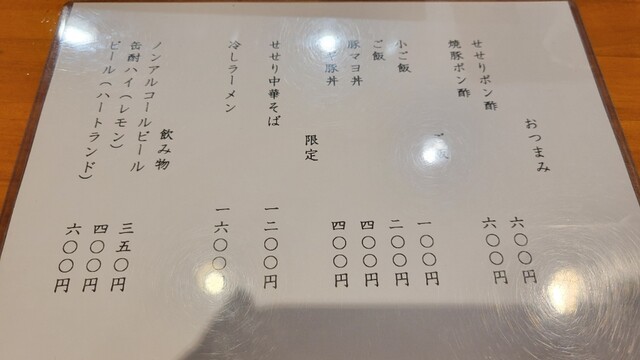 おつまみ
せせりポン酢 六〇〇円
焼豚ポン酢 六〇〇円
小ご飯 一〇〇円
ご飯 二〇〇円
豚マヨ丼 四〇〇円
豚丼 四〇〇円
限定
せせり中華そば 一二〇〇円
冷しラーメン 一六〇〇
飲み物
ノンアルコールビール 三五〇円
缶酎ハイ(レモン) 四〇〇円
ビール(ハートランド) 六〇〇円